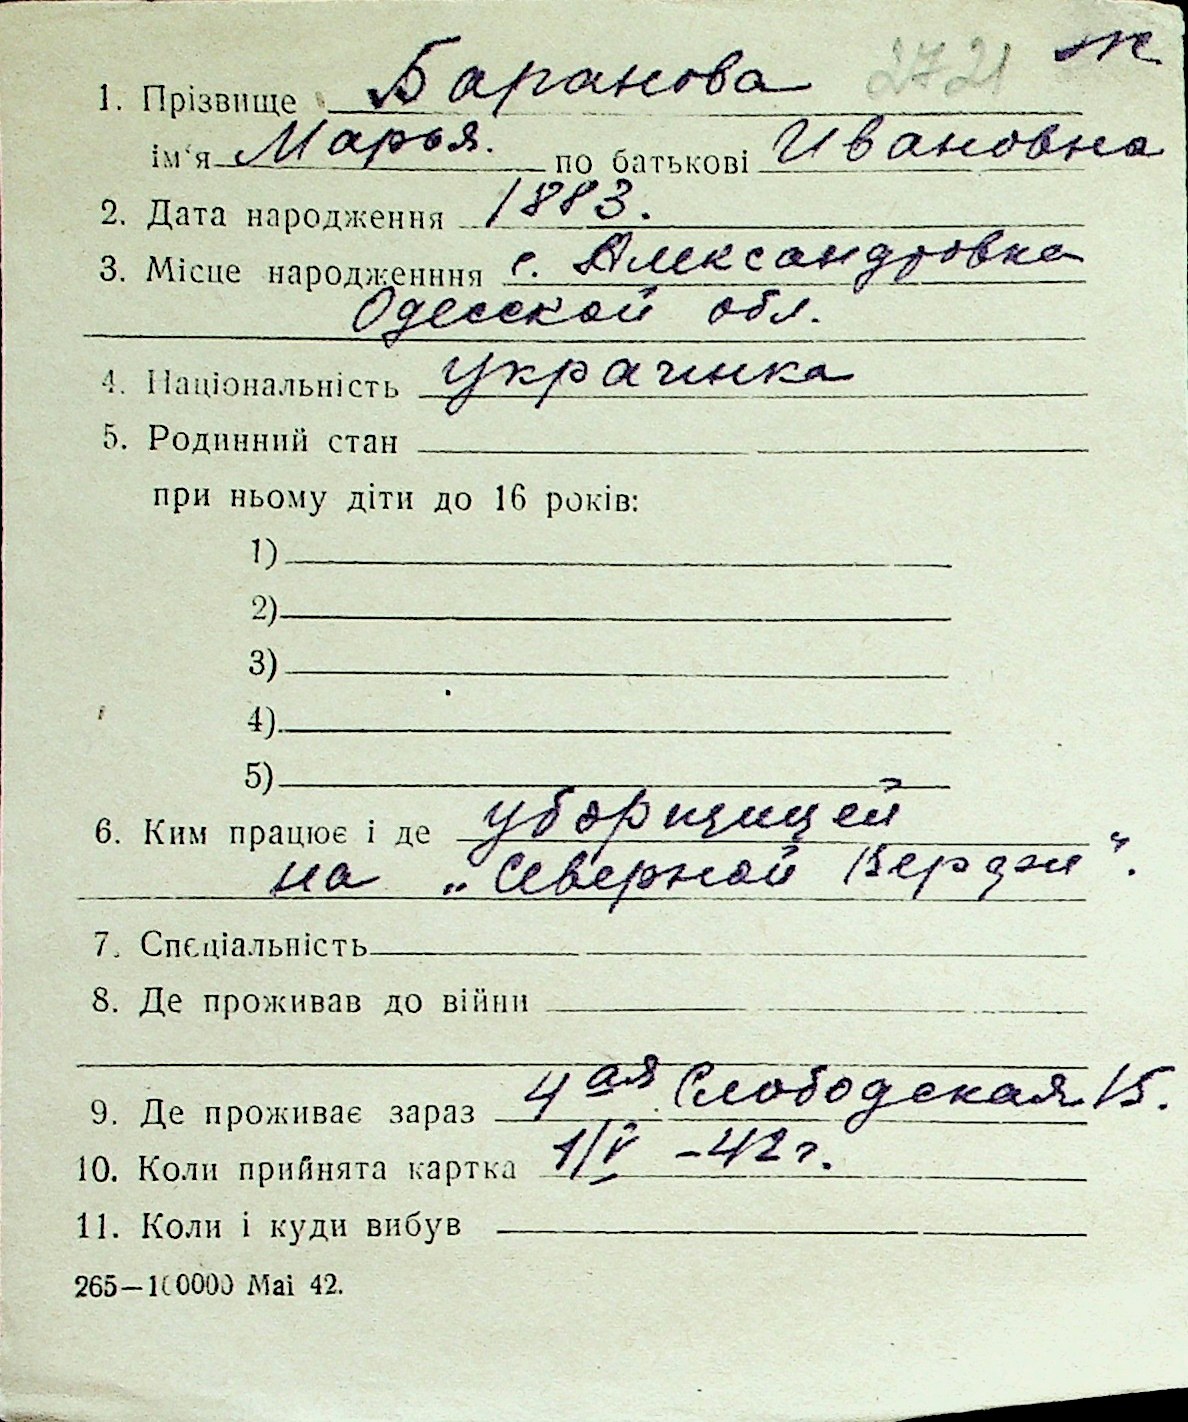 2721 ж
1. Прізвище Баранова
ім'я Марья. по батькові Ивановна
2. Дата народження 1883.
3. Місце народженння с. Александровка
Одесской обл.
4. Національність украинка
5. Родинний стан
при ньому діти до 16 років:
1)
2)
3)
4)
5)
6. Ким працює і де уборщицей
на „Северной Верфи".
7. Спєціальність
8. Де проживав до війни
9. Де проживає зараз 4ая Слободская 15.
10. Коли прийнята картка 1/V -42 г.
11. Коли і куди вибув
265—100000 Маі 42.